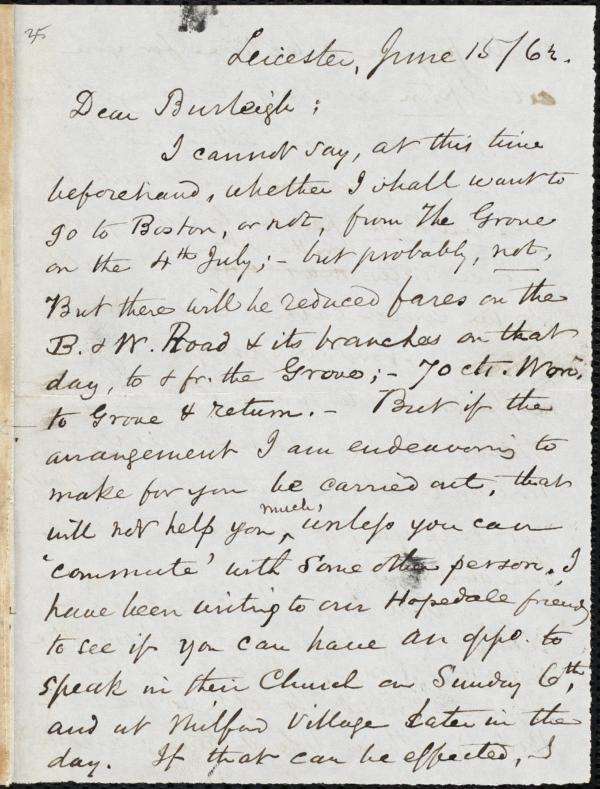 25
Leicester, June 15/62.
Dear Burleigh;
I cannot say, at this time
beforehand, whether I shall want to
go to Boston, or not, from The Grove
on the 4th July; - but probably, not.
But there will be reduced fares on the
B. & W. Road & its branches on that
day, to & fr. the Grove; - 70 cts. Worr.
to Grove & return. - But if the
arrangement I am endeavoring to
make for you be carried out, that
will not help you much, unless you can
'commute' with some other person. I
have been writing to our Hopedale friends
to see if you can have an oppo. to
speak in their Church on Sunday 6th,
and at Milford Village later in the
day. If that can be effected, I